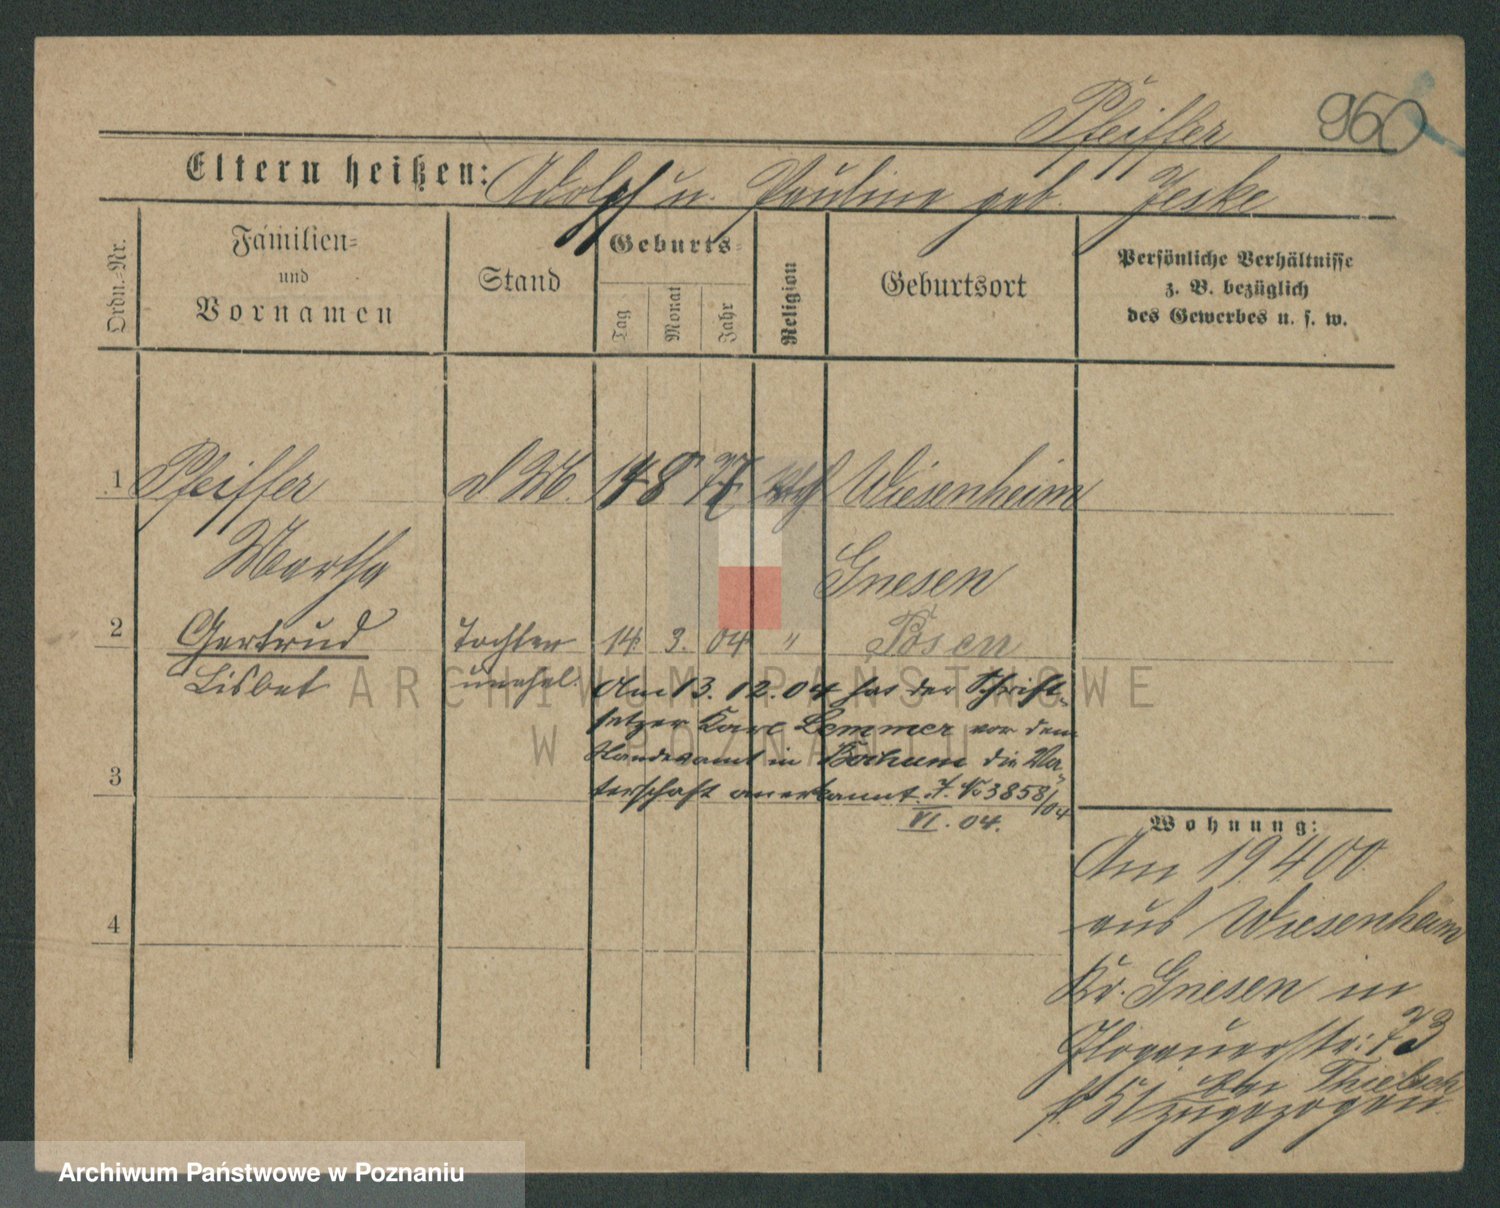 Pfeiffer 960
Eltern heißen: Adolph u. Paulina geb. Jeske
Ordn.-Nr.
Familien-
und
Vornamen
Stand
Geburts-
Tag
Monat
Jahr
Religion
Geburtsort
Persönliche Verhältnisse
z. B. bezüglich
des Gewerbes u. s. w.
1 Pfeiffer d M. 14 8 77 Wiesenheim
Martha Gnesen
2 Gertrud Tochter 14 3. 04 " Posen
Lisbet unehel.
Am 13. 12. 04 hat der Schrift-
setzer Karl Lemmer vor dem
Standesamt in Bochum die Va-
terschaft anerkannt. J. No 3858/04
VI. 04.
3
4
Wohnung:
Am 19 4 00
aus Wiesenheim
Kr. Gnesen in
Glogauerstr: 73
bei Thielsch
zugezogen.
ARCHIWUM PAŃSTWOWE
W POZNANIU
Archiwum Państwowe w Poznaniu